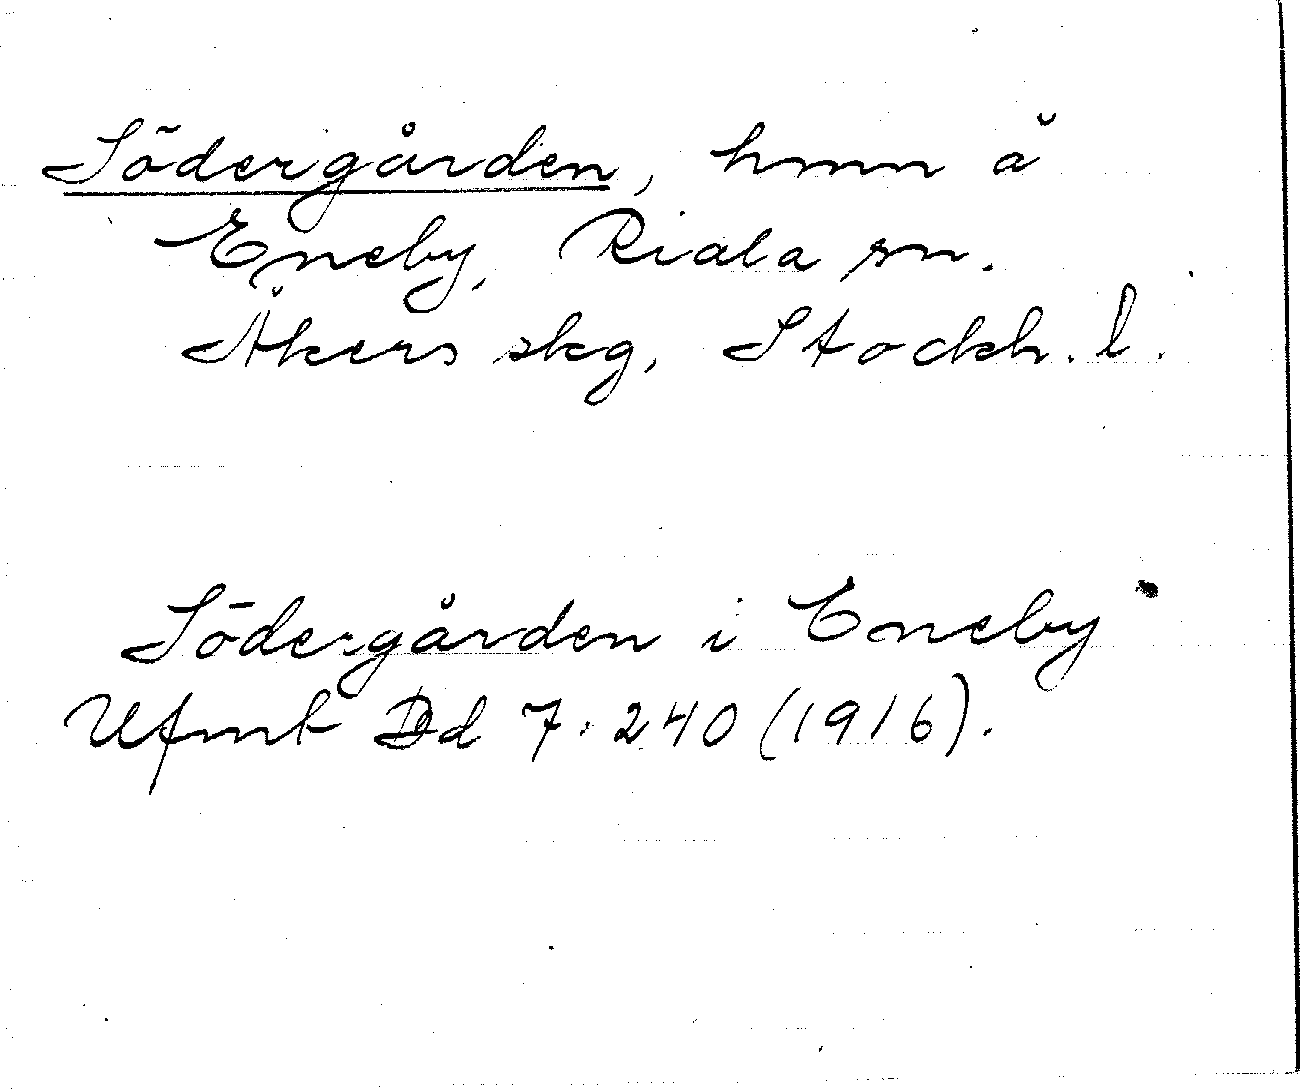 Södergården, hmn å
Eneby, Riala sn.
Åkers skg, Stockh. l.
Södergården i Eneby
Ufmt Dd 7:240 (1916).